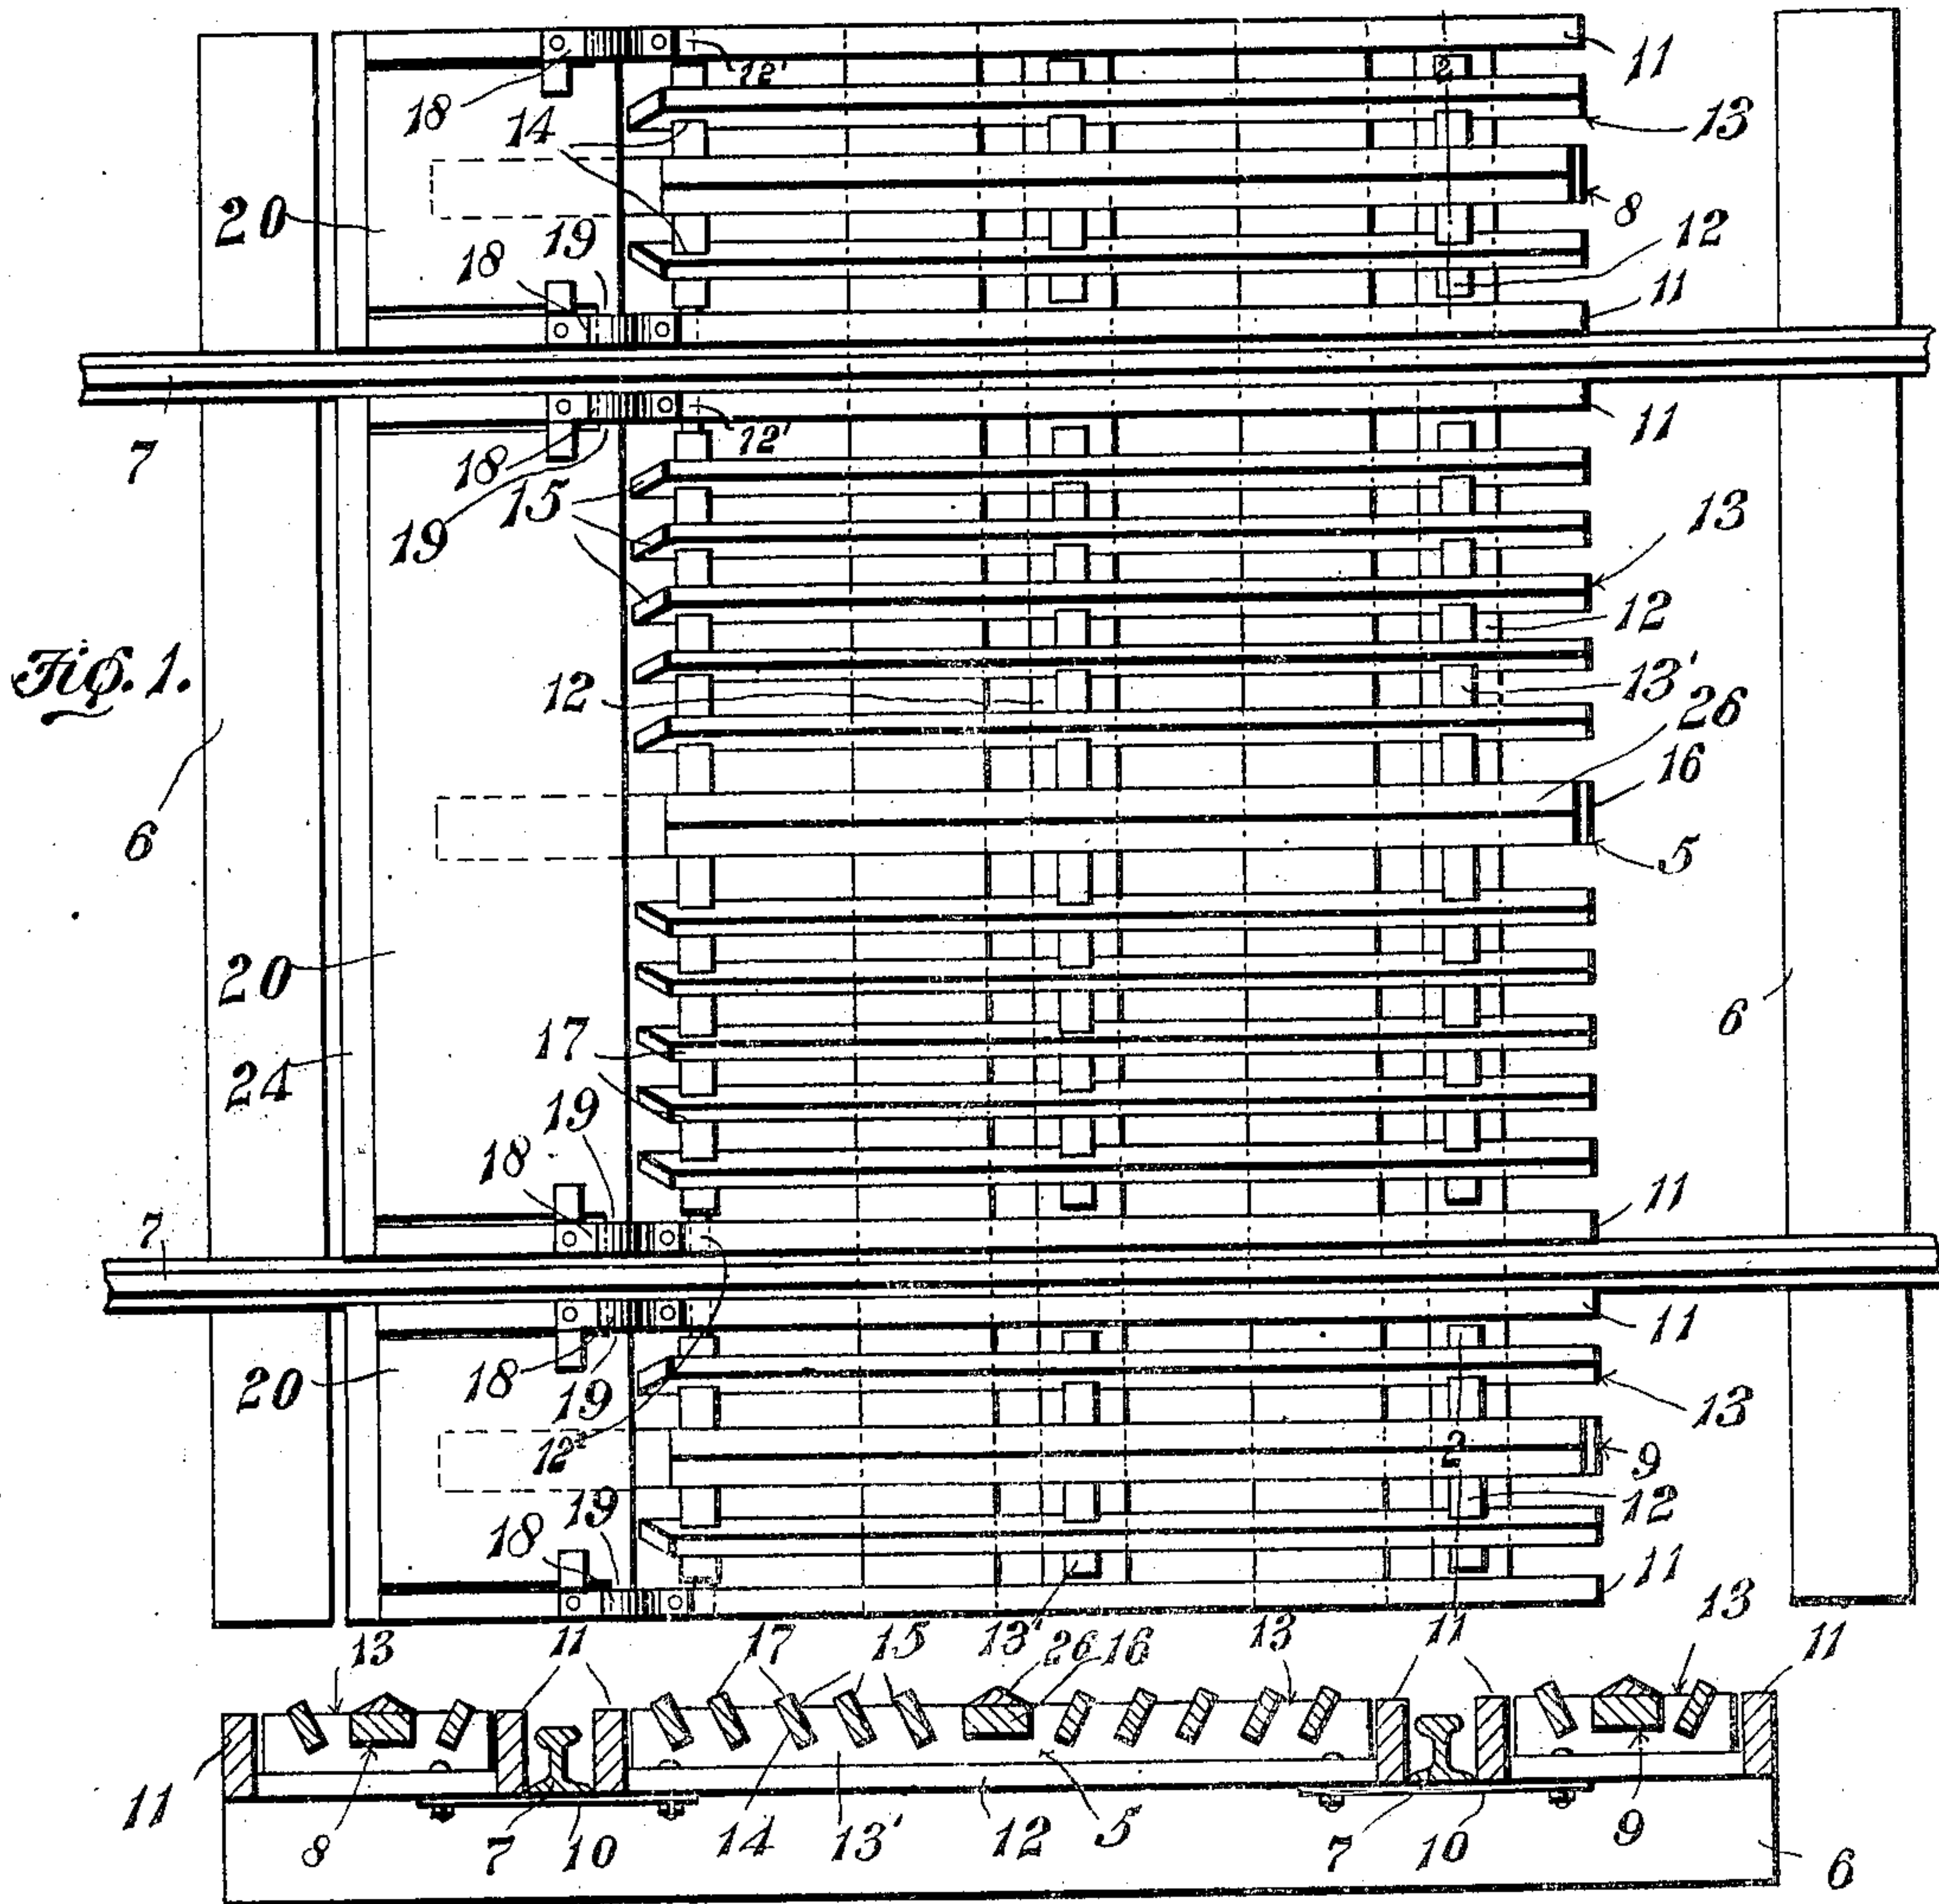 2
11
12'
18
14
13
20
8
19
12
18
11
7
12'
11
18
19
15
13
12
Fig. 1.
12
13'
26
16
6
5
20
6
17
24
19
18
11
7
11
18
19
20
13
12'
2
9
12
19
18
11
13
11
17
15
13'
26
16
13
11
13
11
11
8
7
10
14
13'
12
5
7
10
9
6